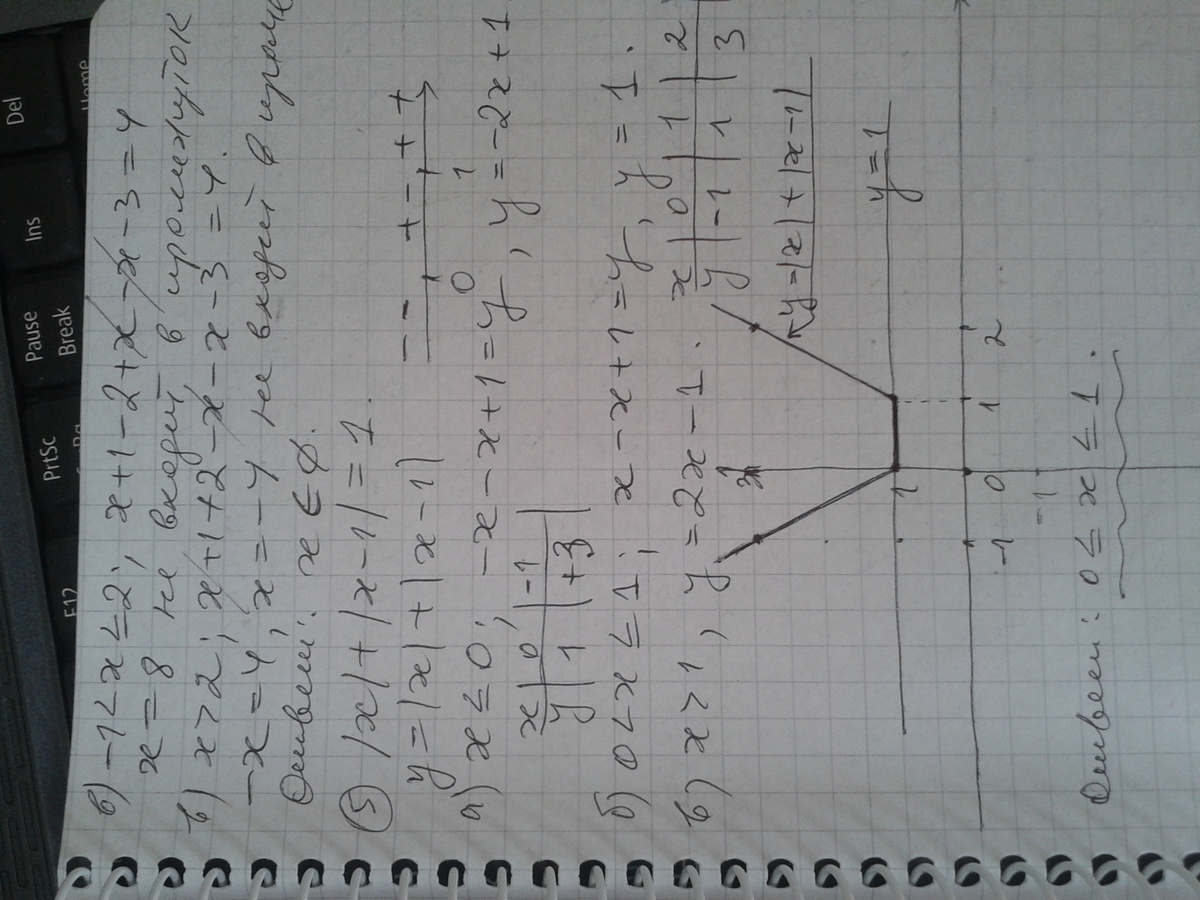 в) -1 < x ≤ 2; x + 1 - 2 + x - x - 3 = 4
x = 8 не входит в промежуток
в) x > 2; x + 1 + 2 - x - x - 3 = 4.
-x = 4; x = -4 не входит в
Ответ: x ∈ ∅.
⑤ |x| + |x - 1| = 1.
y = |x| + |x - 1|
- - + - + +
0 1
а) x ≤ 0; -x - x + 1 = y, y = -2x + 1
x | 0 | -1
y | 1 | +3
б) 0 < x ≤ 1; x - x + 1 = y, y = 1.
в) x > 1, y = 2x - 1.
x | 0 | 1 | 2
y | -1 | 1 | 3
y = |x| + |x - 1|
3
y = 1
1
-1 0 1 2
-1
Ответ: 0 ≤ x ≤ 1.
Del
Home
Ins
Pause
Break
PrtSc
F12